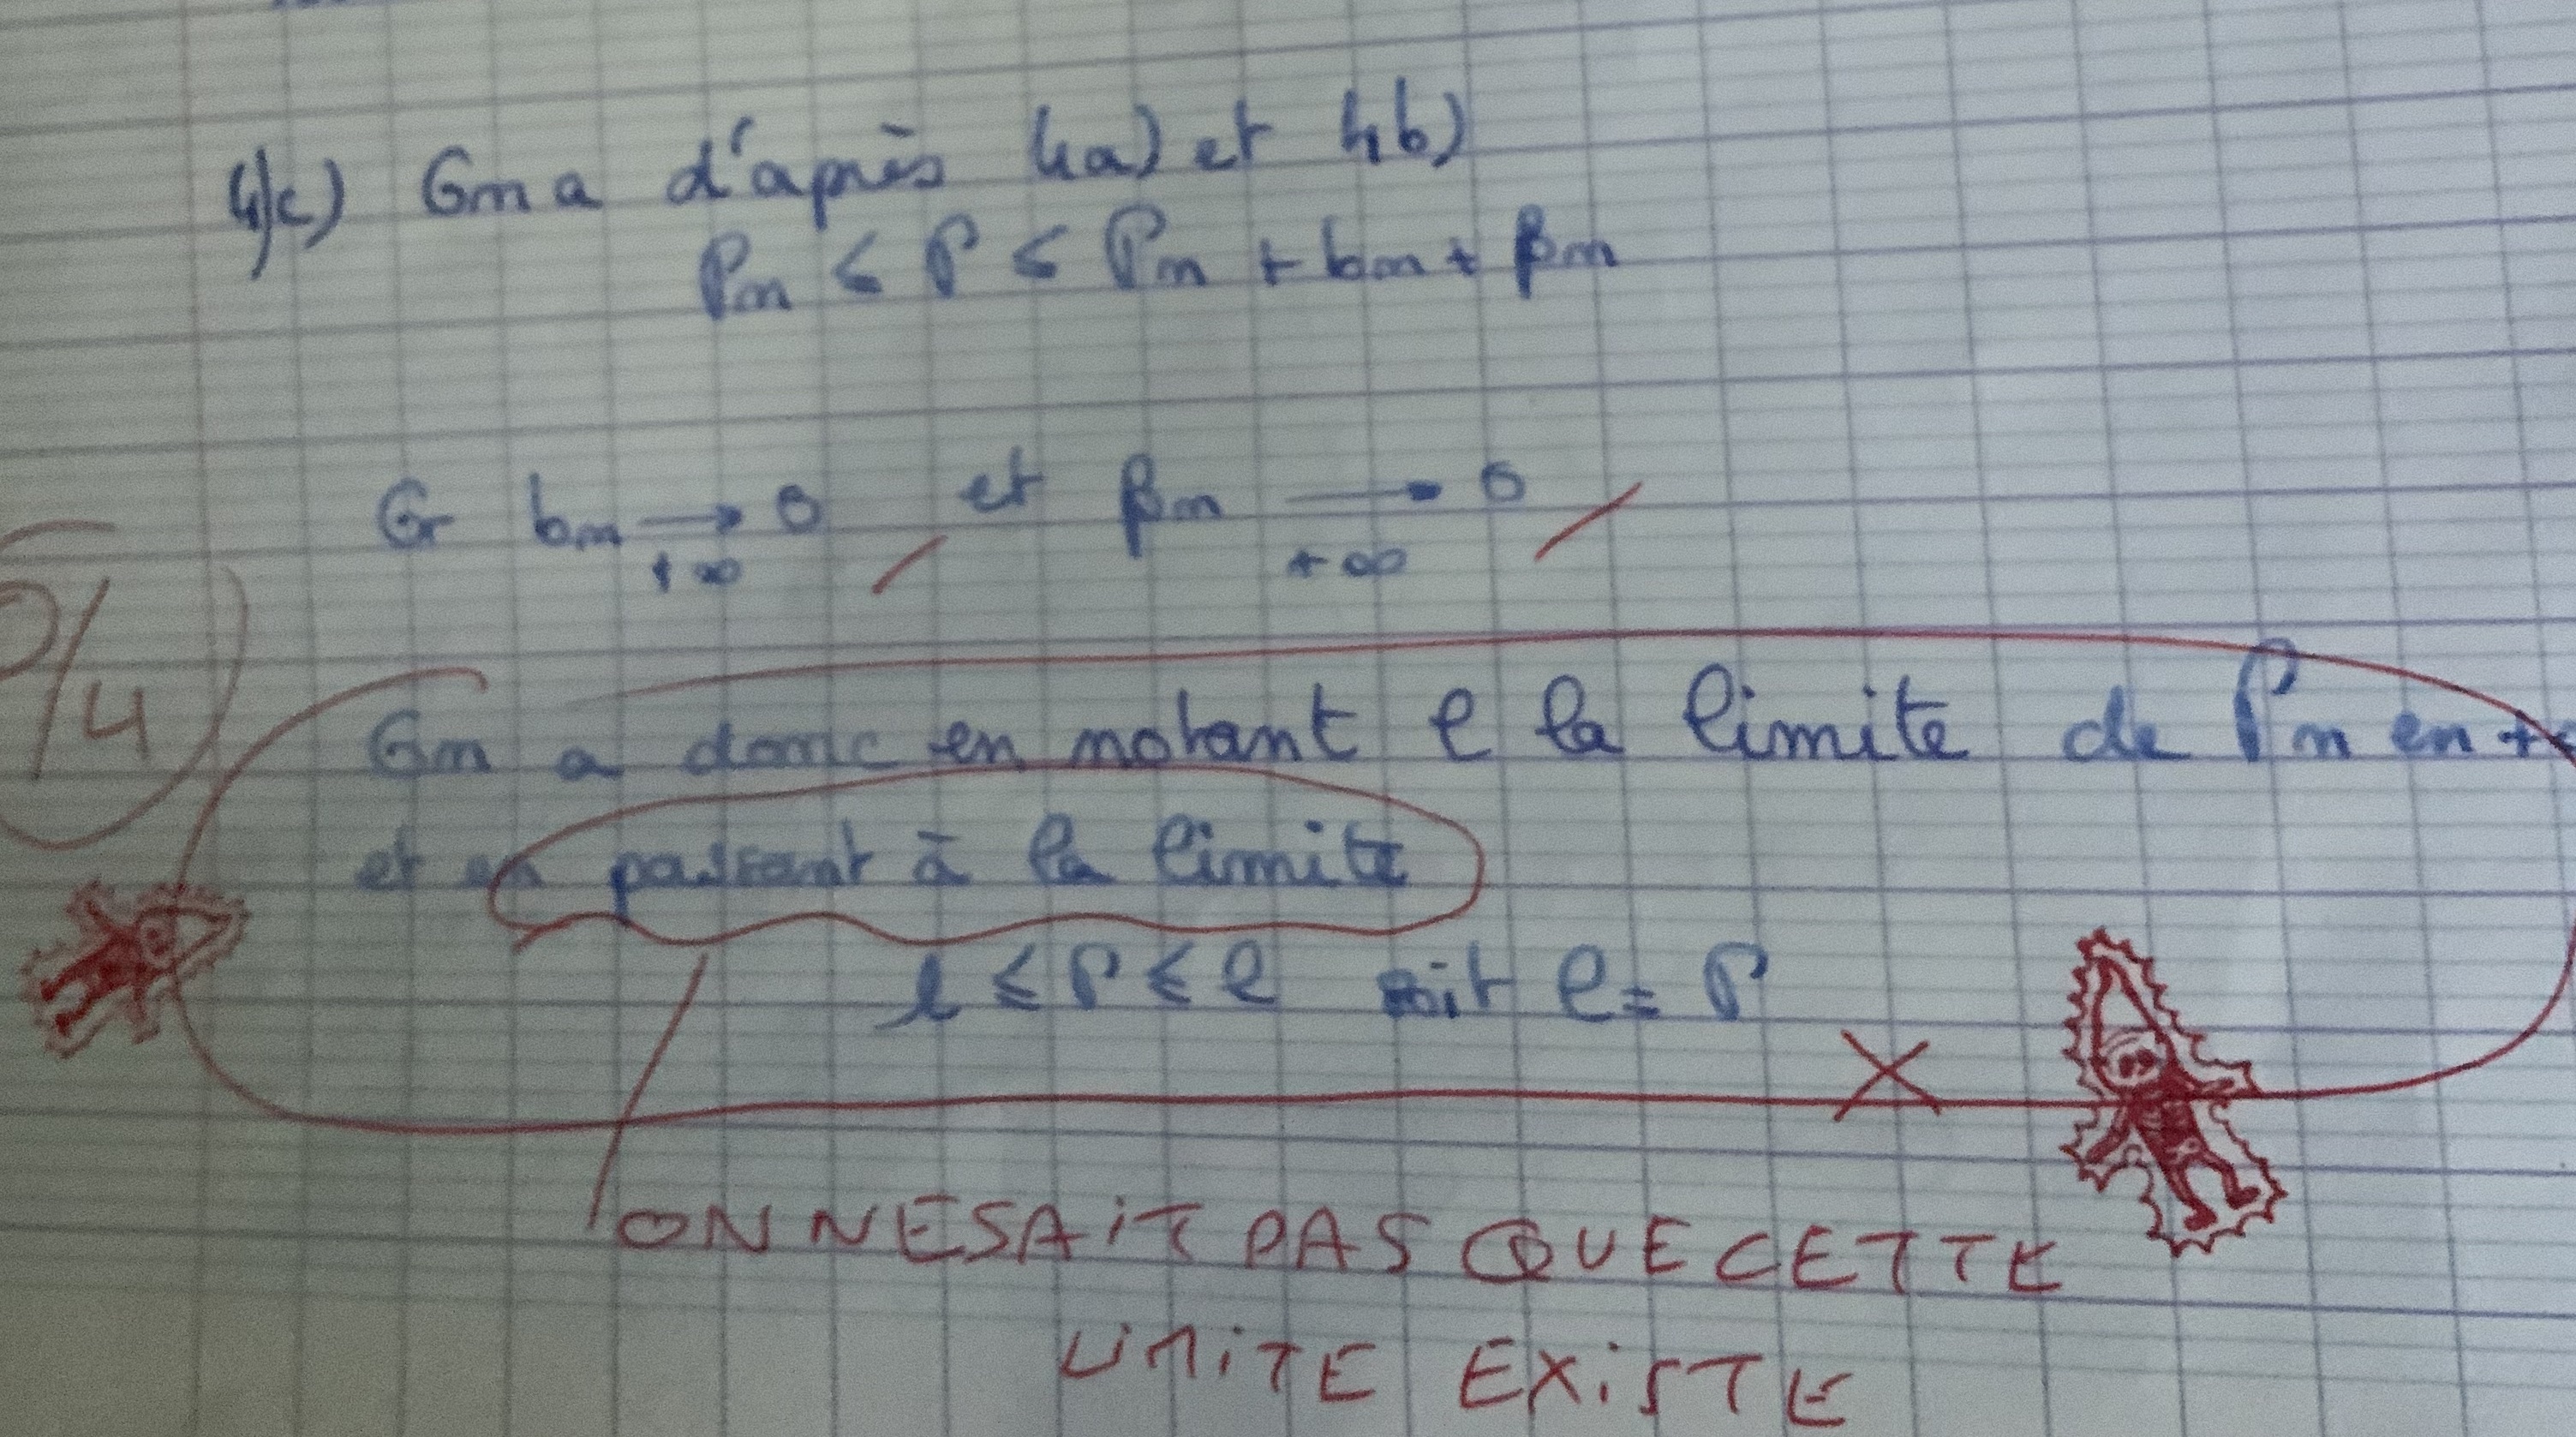 4)c) On a d'après 4a) et 4b)
Pn ≤ P ≤ Pn + bn + βn
Or bn → 0 et βn → 0
+∞ +∞
/4
On a donc en notant l la limite de Pn en +
et en passant à la limite
l ≤ P ≤ l soit l = P
ON NE SAIT PAS QUE CETTE
LIMITE EXISTE